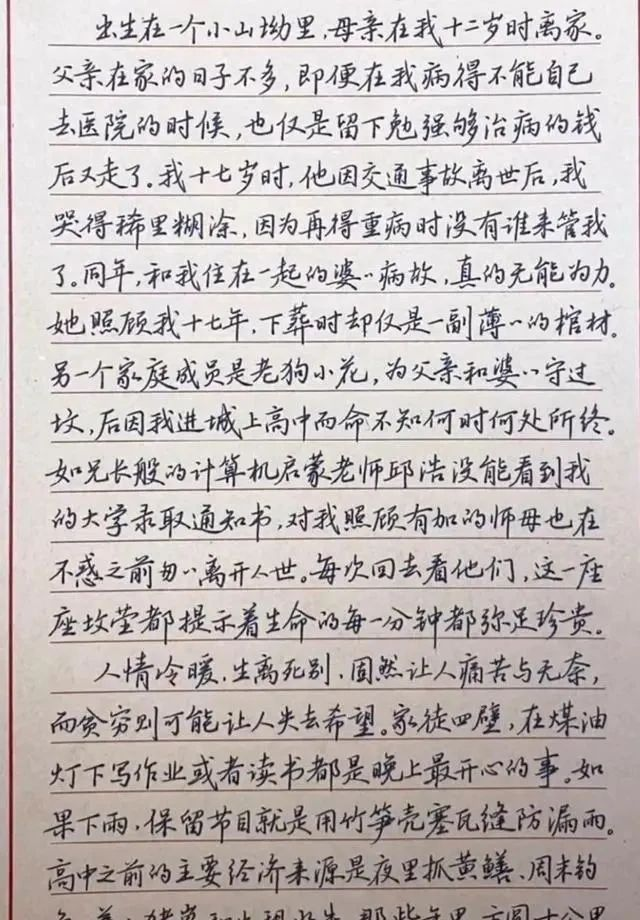 出生在一个小山坳里，母亲在我十二岁时离家。
父亲在家的日子不多，即便在我病得不能自己
去医院的时候，也仅是留下勉强够治病的钱
后又走了。我十七岁时，他因交通事故离世后，我
哭得稀里糊涂，因为再得重病时没有谁来管我
了。同年，和我住在一起的婆〻病故，真的无能为力。
她照顾我十七年，下葬时却仅是一副薄〻的棺材。
另一个家庭成员是老狗小花，为父亲和婆〻守过
坟，后因我进城上高中而命不知何时何处所终。
如兄长般的计算机启蒙老师邱浩没能看到我
的大学录取通知书，对我照顾有加的师母也在
不惑之前匆〻离开人世。每次回去看他们，这一座
座坟茔都提示着生命的每一分钟都弥足珍贵。
人情冷暖，生离死别，固然让人痛苦与无奈，
而贫穷则可能让人失去希望。家徒四壁，在煤油
灯下写作业或者读书都是晚上最开心的事。如
果下雨，保留节目就是用竹笋壳塞瓦缝防漏雨。
高中之前的主要经济来源是夜里抓黄鳝、周末钓